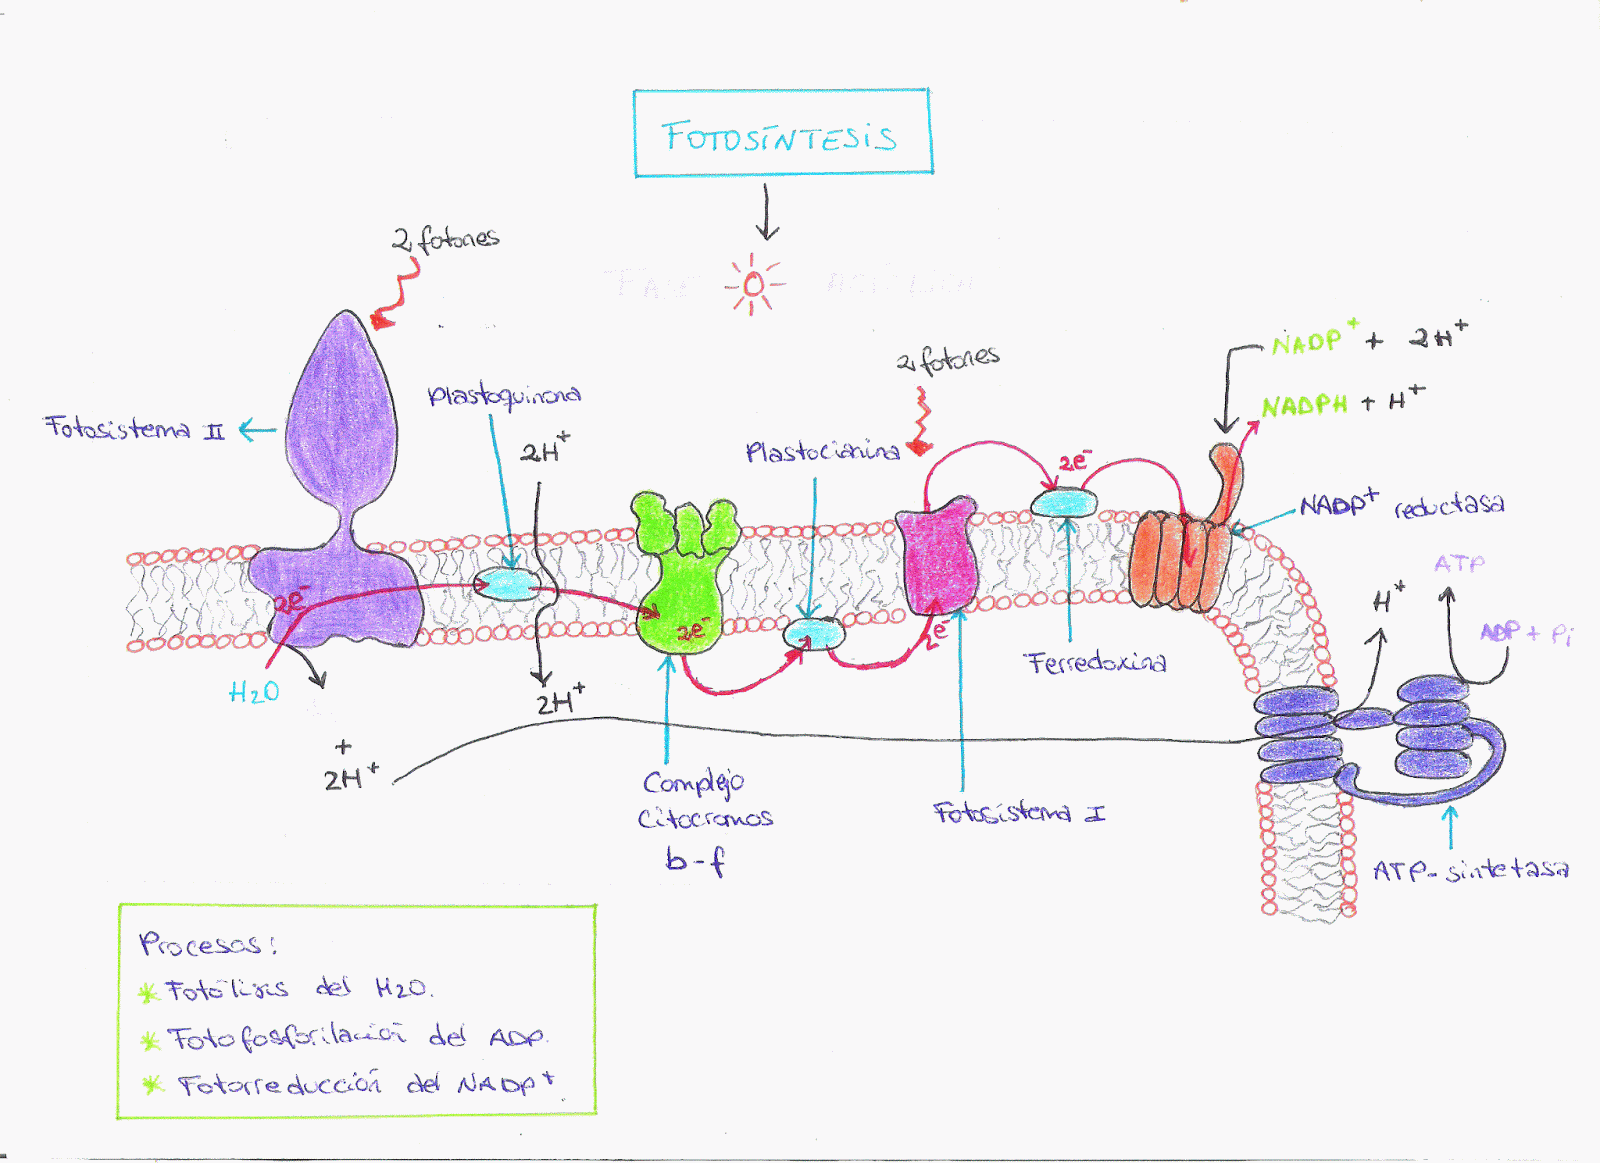 FOTOSÍNTESIS
2 fotones
Fotosistema II
Plastoquinona
2H+
2 fotones
Plastocianina
NADP+ + 2H+
NADPH + H+
2e-
NADP+ reductasa
ATP
H+
ADP + Pi
2e-
2e-
2e-
H2O
2H+
Ferredoxina
+
2H+
Complejo
Citocromos
b-f
Fotosistema I
ATP-sintetasa
Procesos:
* Fotólisis del H2O.
* Fotofosforilación del ADP.
* Fotorreducción del NADP+